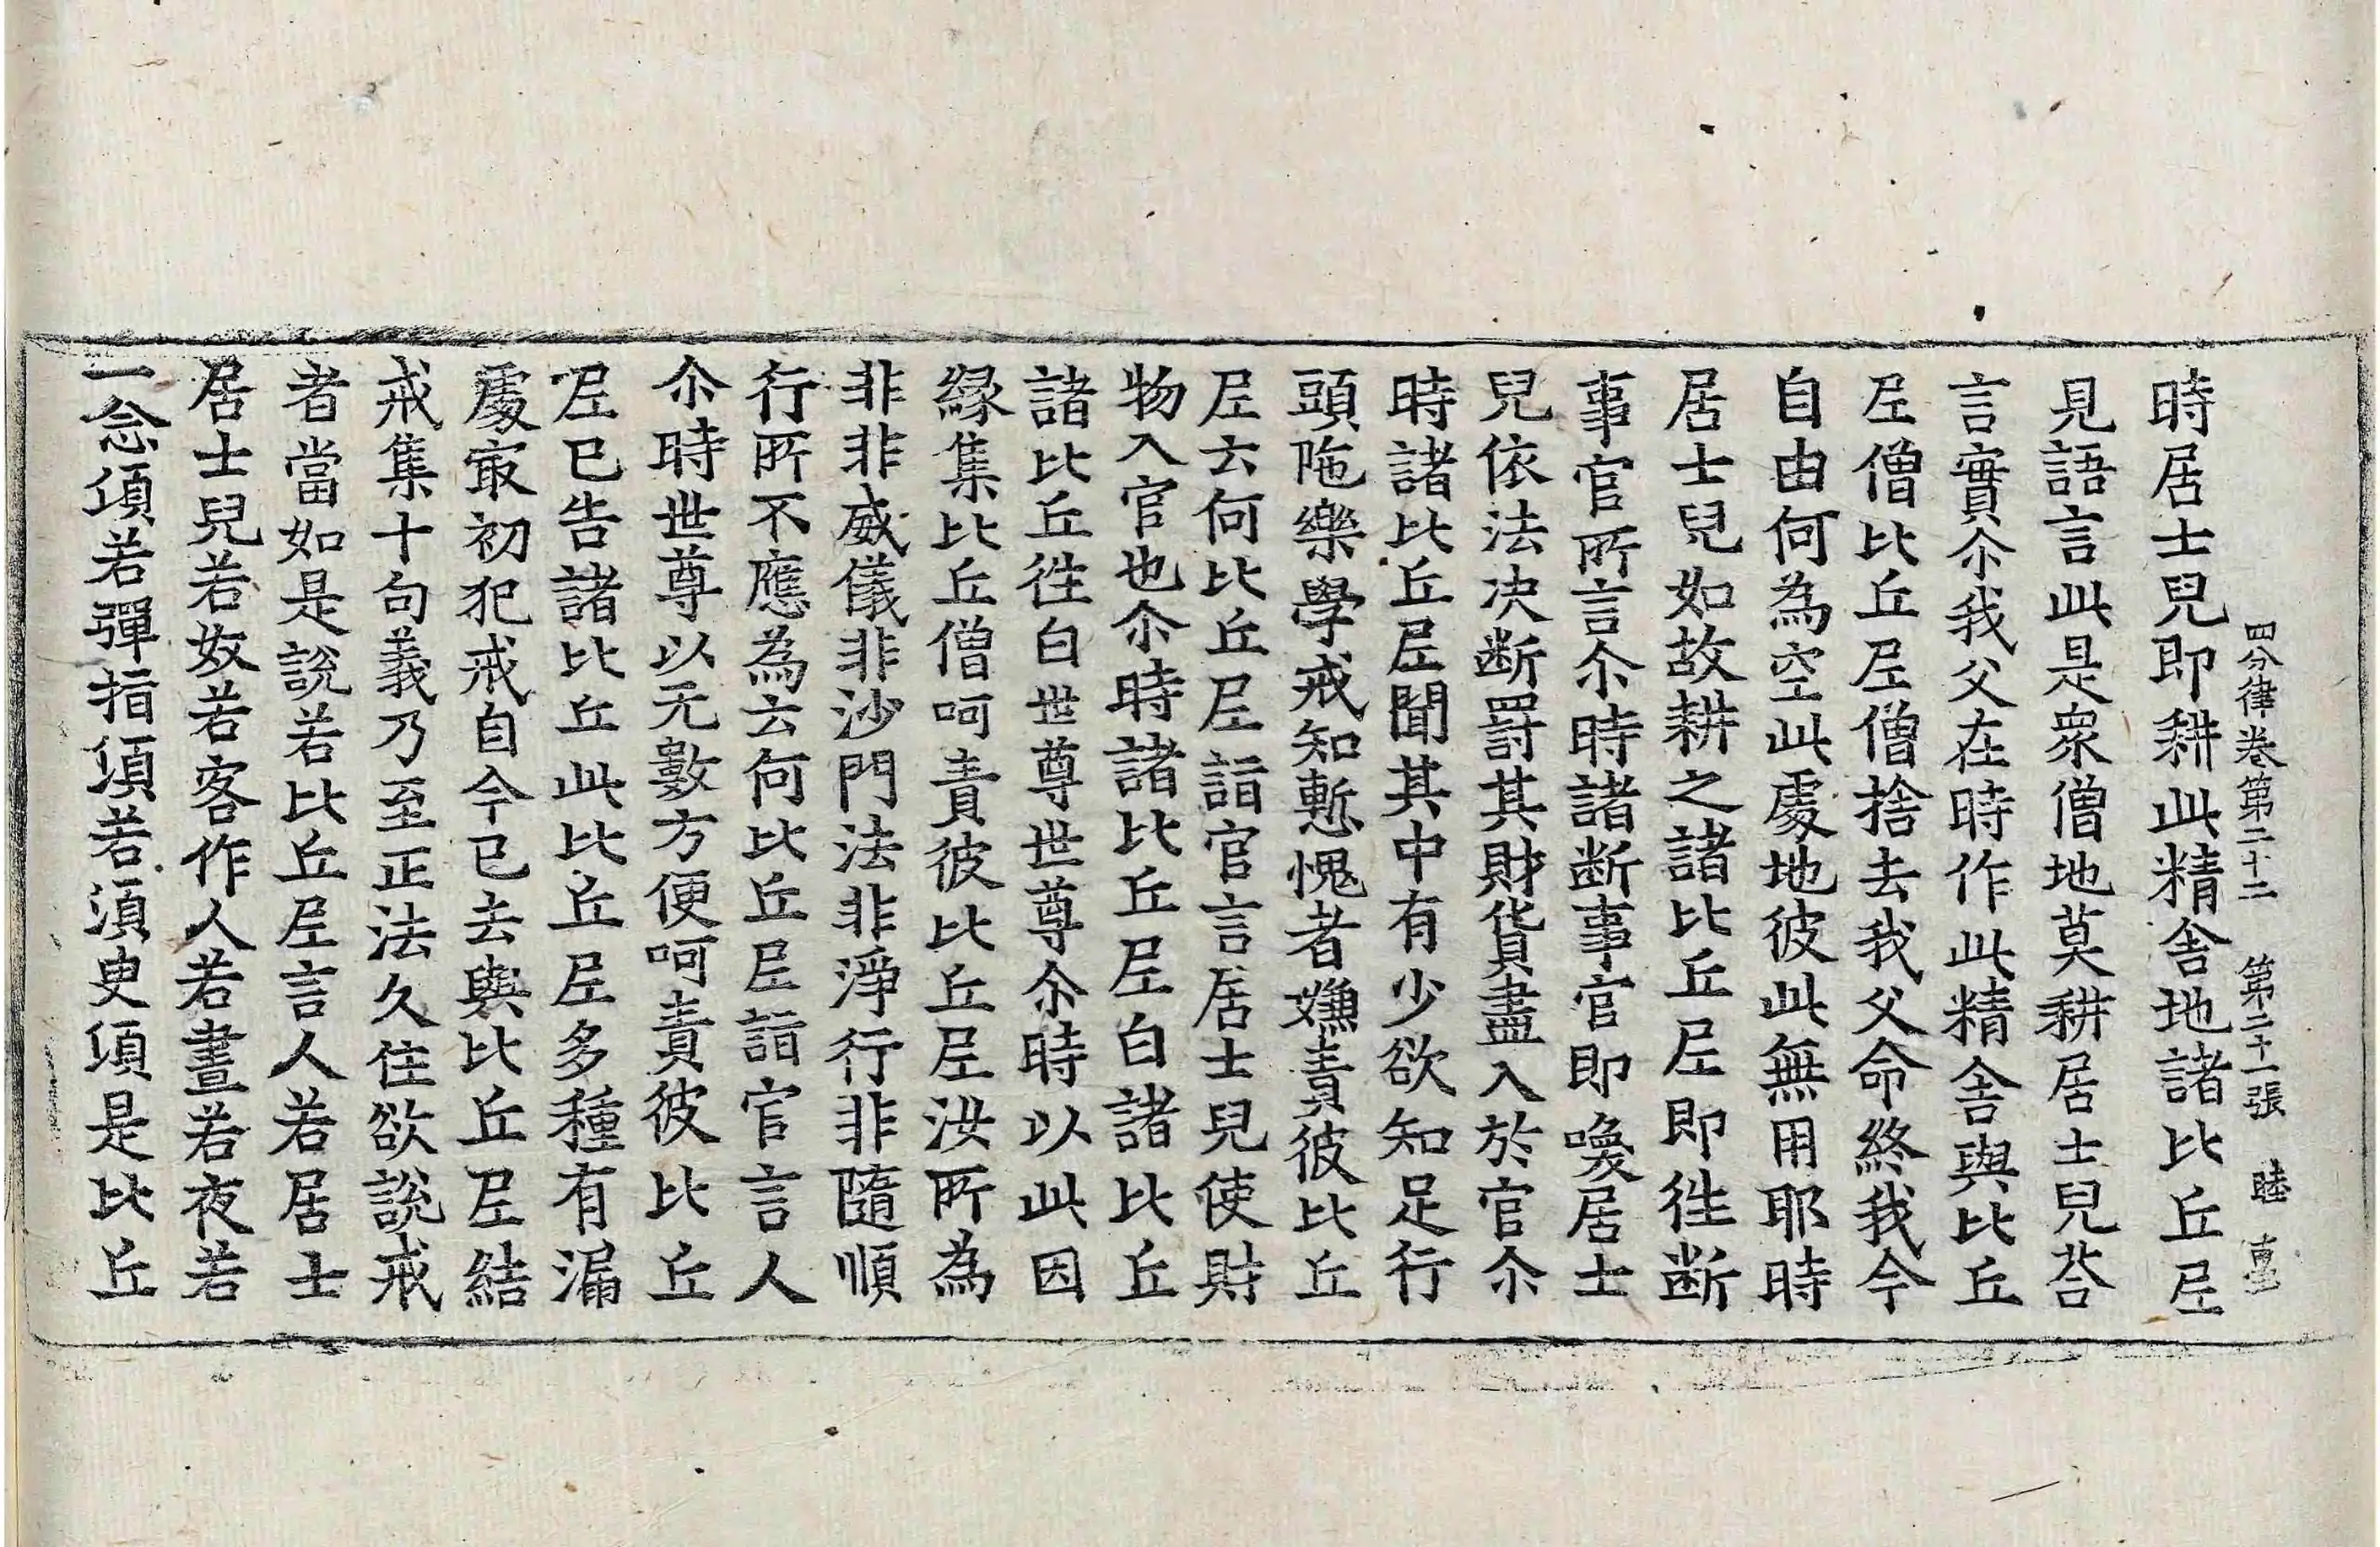 四分律卷第二十二 第二十一張 睦
時居士兒即耕此精舍地諸比丘尼
見語言此是衆僧地莫耕居士兒荅
言實尒我父在時作此精舍與比丘
尼僧比丘尼僧捨去我父命終我今
自由何為空此處地彼此無用耶時
居士兒如故耕之諸比丘尼即往斷
事官所言尒時諸断事官即喚居士
兒依法决断罸其財貨盡入於官尒
時諸比丘尼聞其中有少欲知足行
頭陁樂學戒知慙愧者嫌責彼比丘
尼云何比丘尼詣官言居士兒使財
物入官也尒時諸比丘尼白諸比丘
諸比丘往白世尊世尊尒時以此因
緣集比丘僧呵責彼比丘尼汝所為
非非威儀非沙門法非淨行非隨順
行所不應為云何比丘尼詣官言人
尒時世尊以无數方便呵責彼比丘
尼已告諸比丘此比丘尼多種有漏
處冣初犯戒自今已去與比丘尼結
戒集十句義乃至正法久住欲說戒
者當如是說若比丘尼言人若居士
居士兒若奴若客作人若晝若夜若
一念頃若彈指頃若湏臾頃是比丘